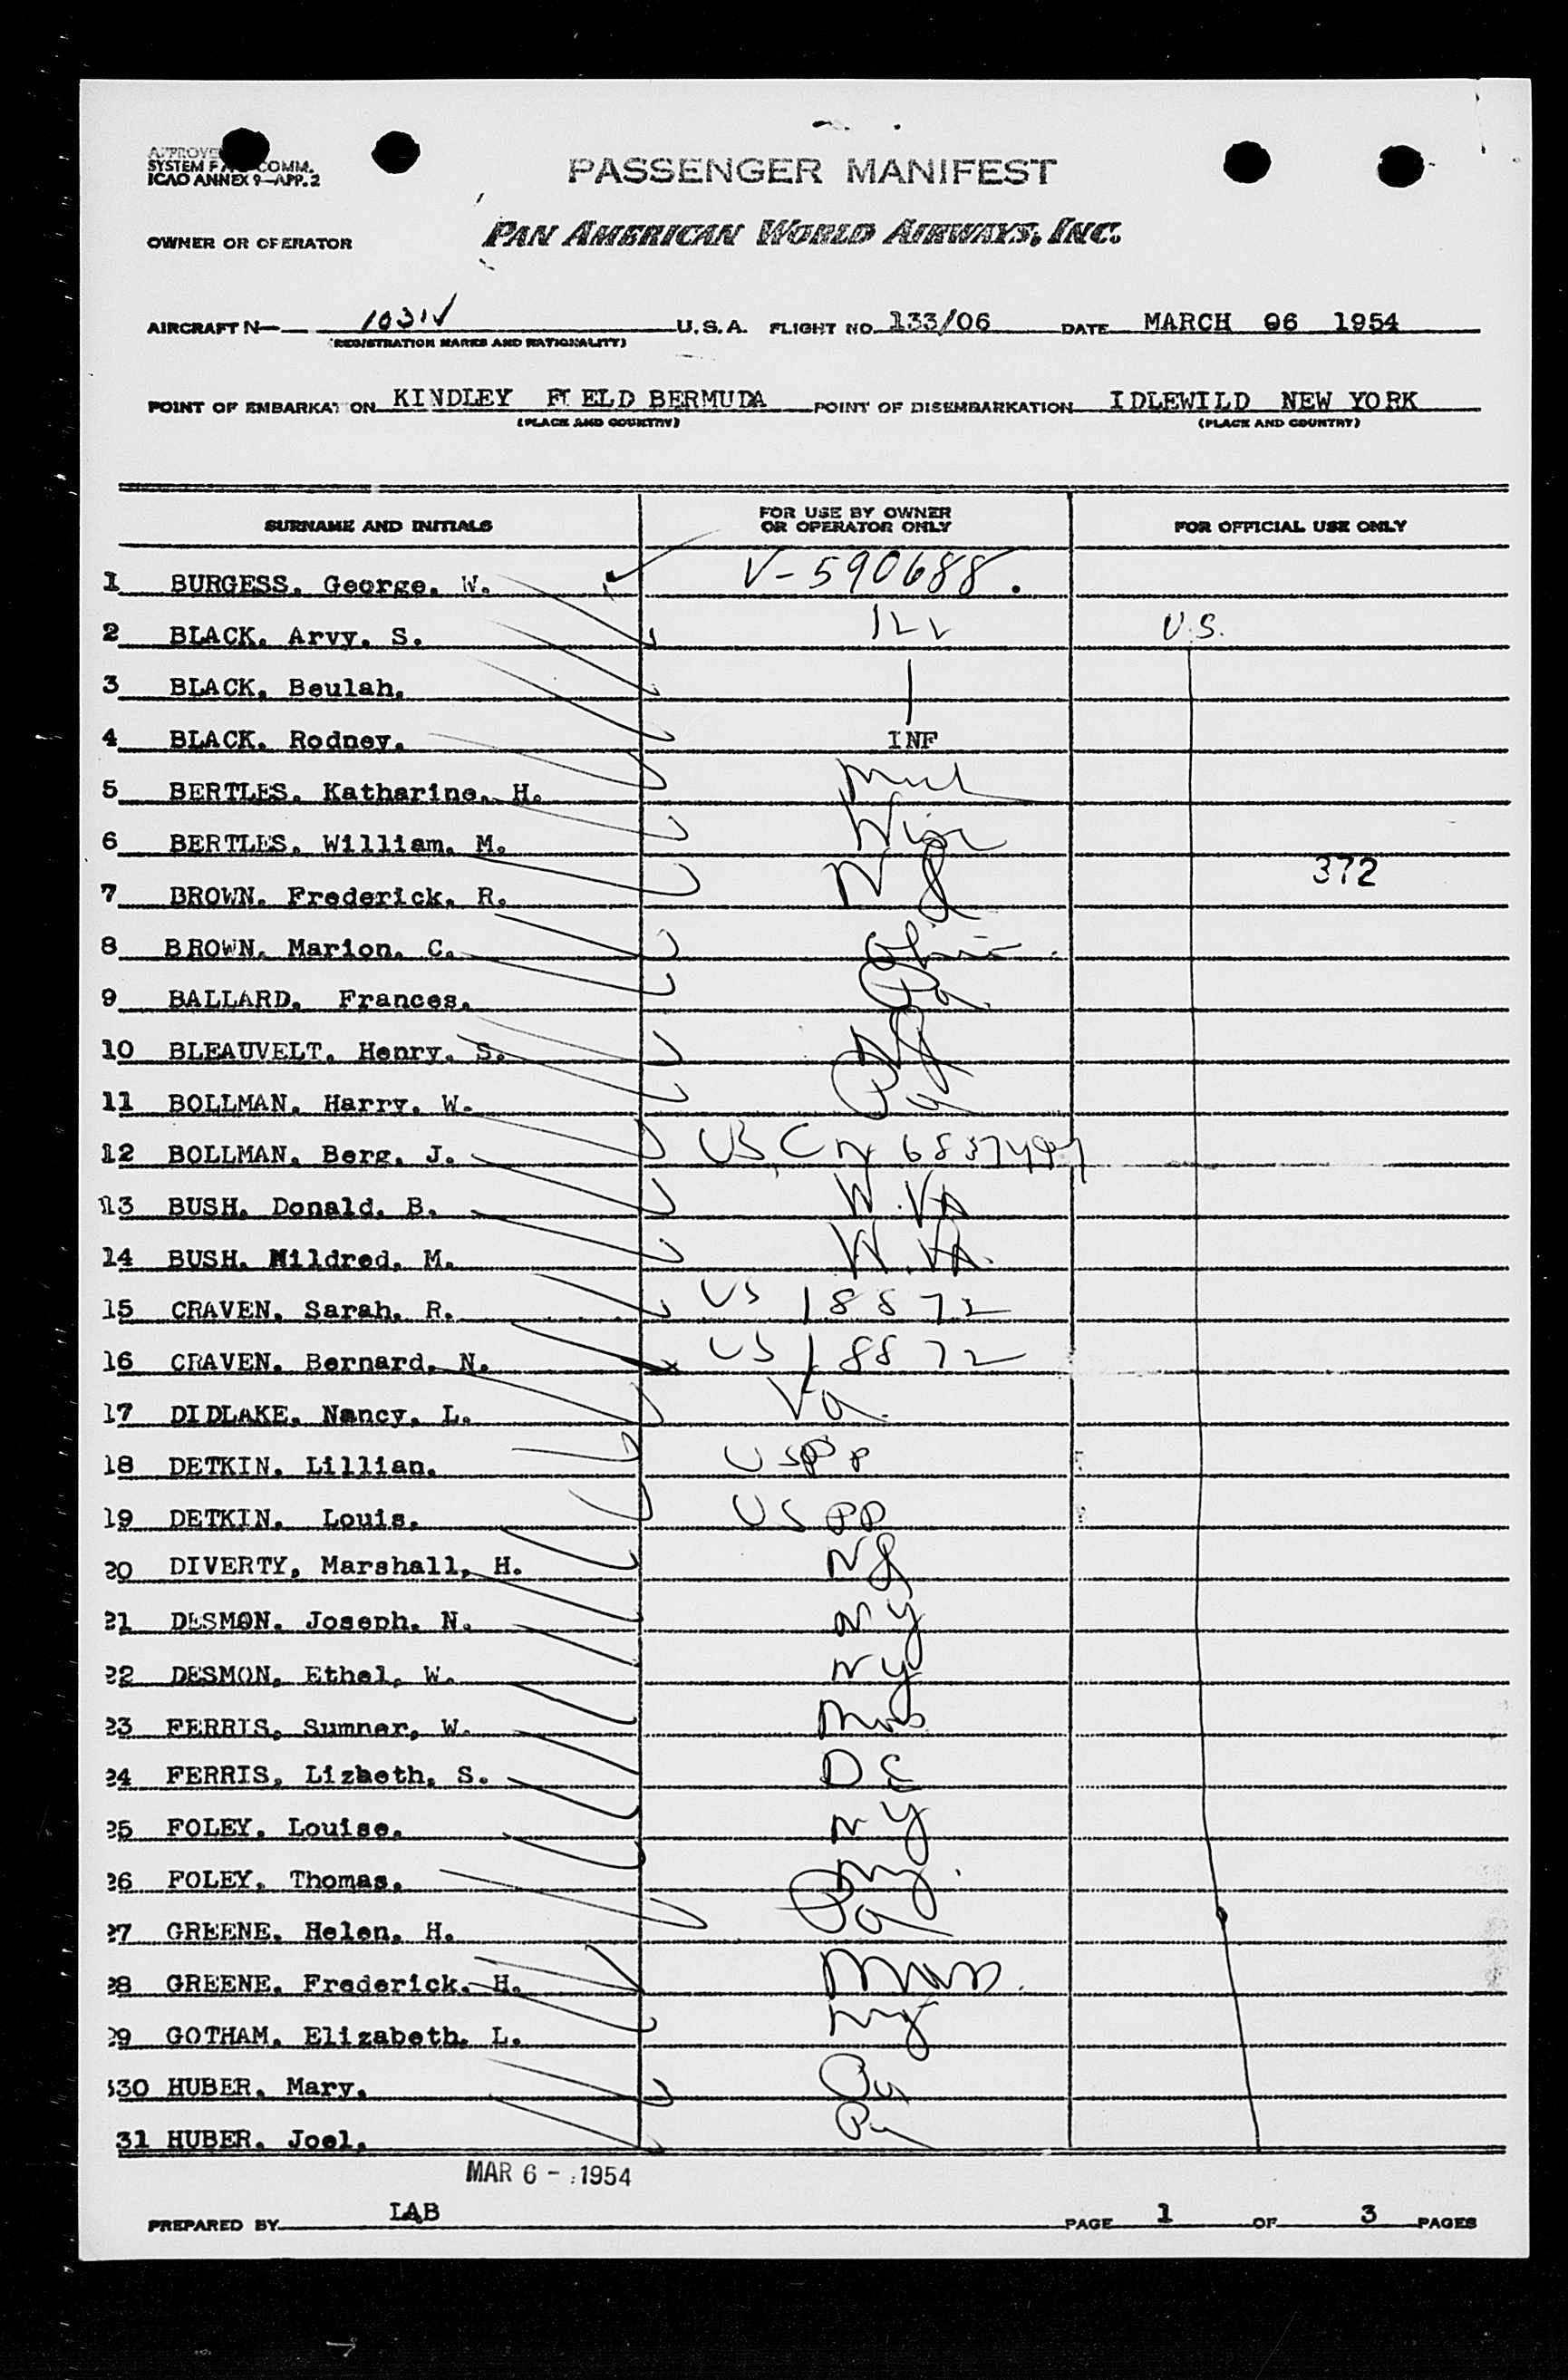 APPROVED
SYSTEM FAL COMM.
ICAO ANNEX 9—APP. 2
PASSENGER MANIFEST
OWNER OR OPERATOR PAN AMERICAN WORLD AIRWAYS, INC.
AIRCRAFT N— 1031V U.S.A. FLIGHT NO. 133/06 DATE MARCH 06 1954
(REGISTRATION MARKS AND NATIONALITY)
POINT OF EMBARKATION KINDLEY FIELD BERMUDA POINT OF DISEMBARKATION IDLEWILD NEW YORK
(PLACE AND COUNTRY) (PLACE AND COUNTRY)
SURNAME AND INITIALS FOR USE BY OWNER OR OPERATOR ONLY FOR OFFICIAL USE ONLY
1 BURGESS. George. W. V-590688.
2 BLACK. Arvy. S. ILL U.S.
3 BLACK. Beulah.
4 BLACK. Rodney. INF
5 BERTLES. Katharine. H.
6 BERTLES. William. M.
7 BROWN. Frederick. R. NJ 372
8 BROWN. Marion. C. Ohio
9 BALLARD. Frances. Pa.
10 BLEAUVELT. Henry. S. NJ
11 BOLLMAN. Harry. W. Pa
12 BOLLMAN. Berg. J.
13 BUSH. Donald. B. W.VA
14 BUSH. Mildred. M. W.VA.
15 CRAVEN. Sarah. R. US 18872
16 CRAVEN. Bernard. N. US 18872
17 DIDLAKE. Nancy. L. Va.
18 DETKIN. Lillian. USPP
19 DETKIN. Louis. US PP
20 DIVERTY. Marshall. H. NJ
21 DESMON. Joseph. N. NY
22 DESMON. Ethel. W. NY
23 FERRIS. Sumner. W. Mass
24 FERRIS. Lizbeth. S. DC
25 FOLEY. Louise. NY
26 FOLEY. Thomas. NY.
27 GREENE. Helen. H. Pa
28 GREENE. Frederick. H. Mass.
29 GOTHAM. Elizabeth. L. NY
30 HUBER. Mary. Pa
31 HUBER. Joel. Pa
MAR 6 - 1954
PREPARED BY LAB PAGE 1 OF 3 PAGES